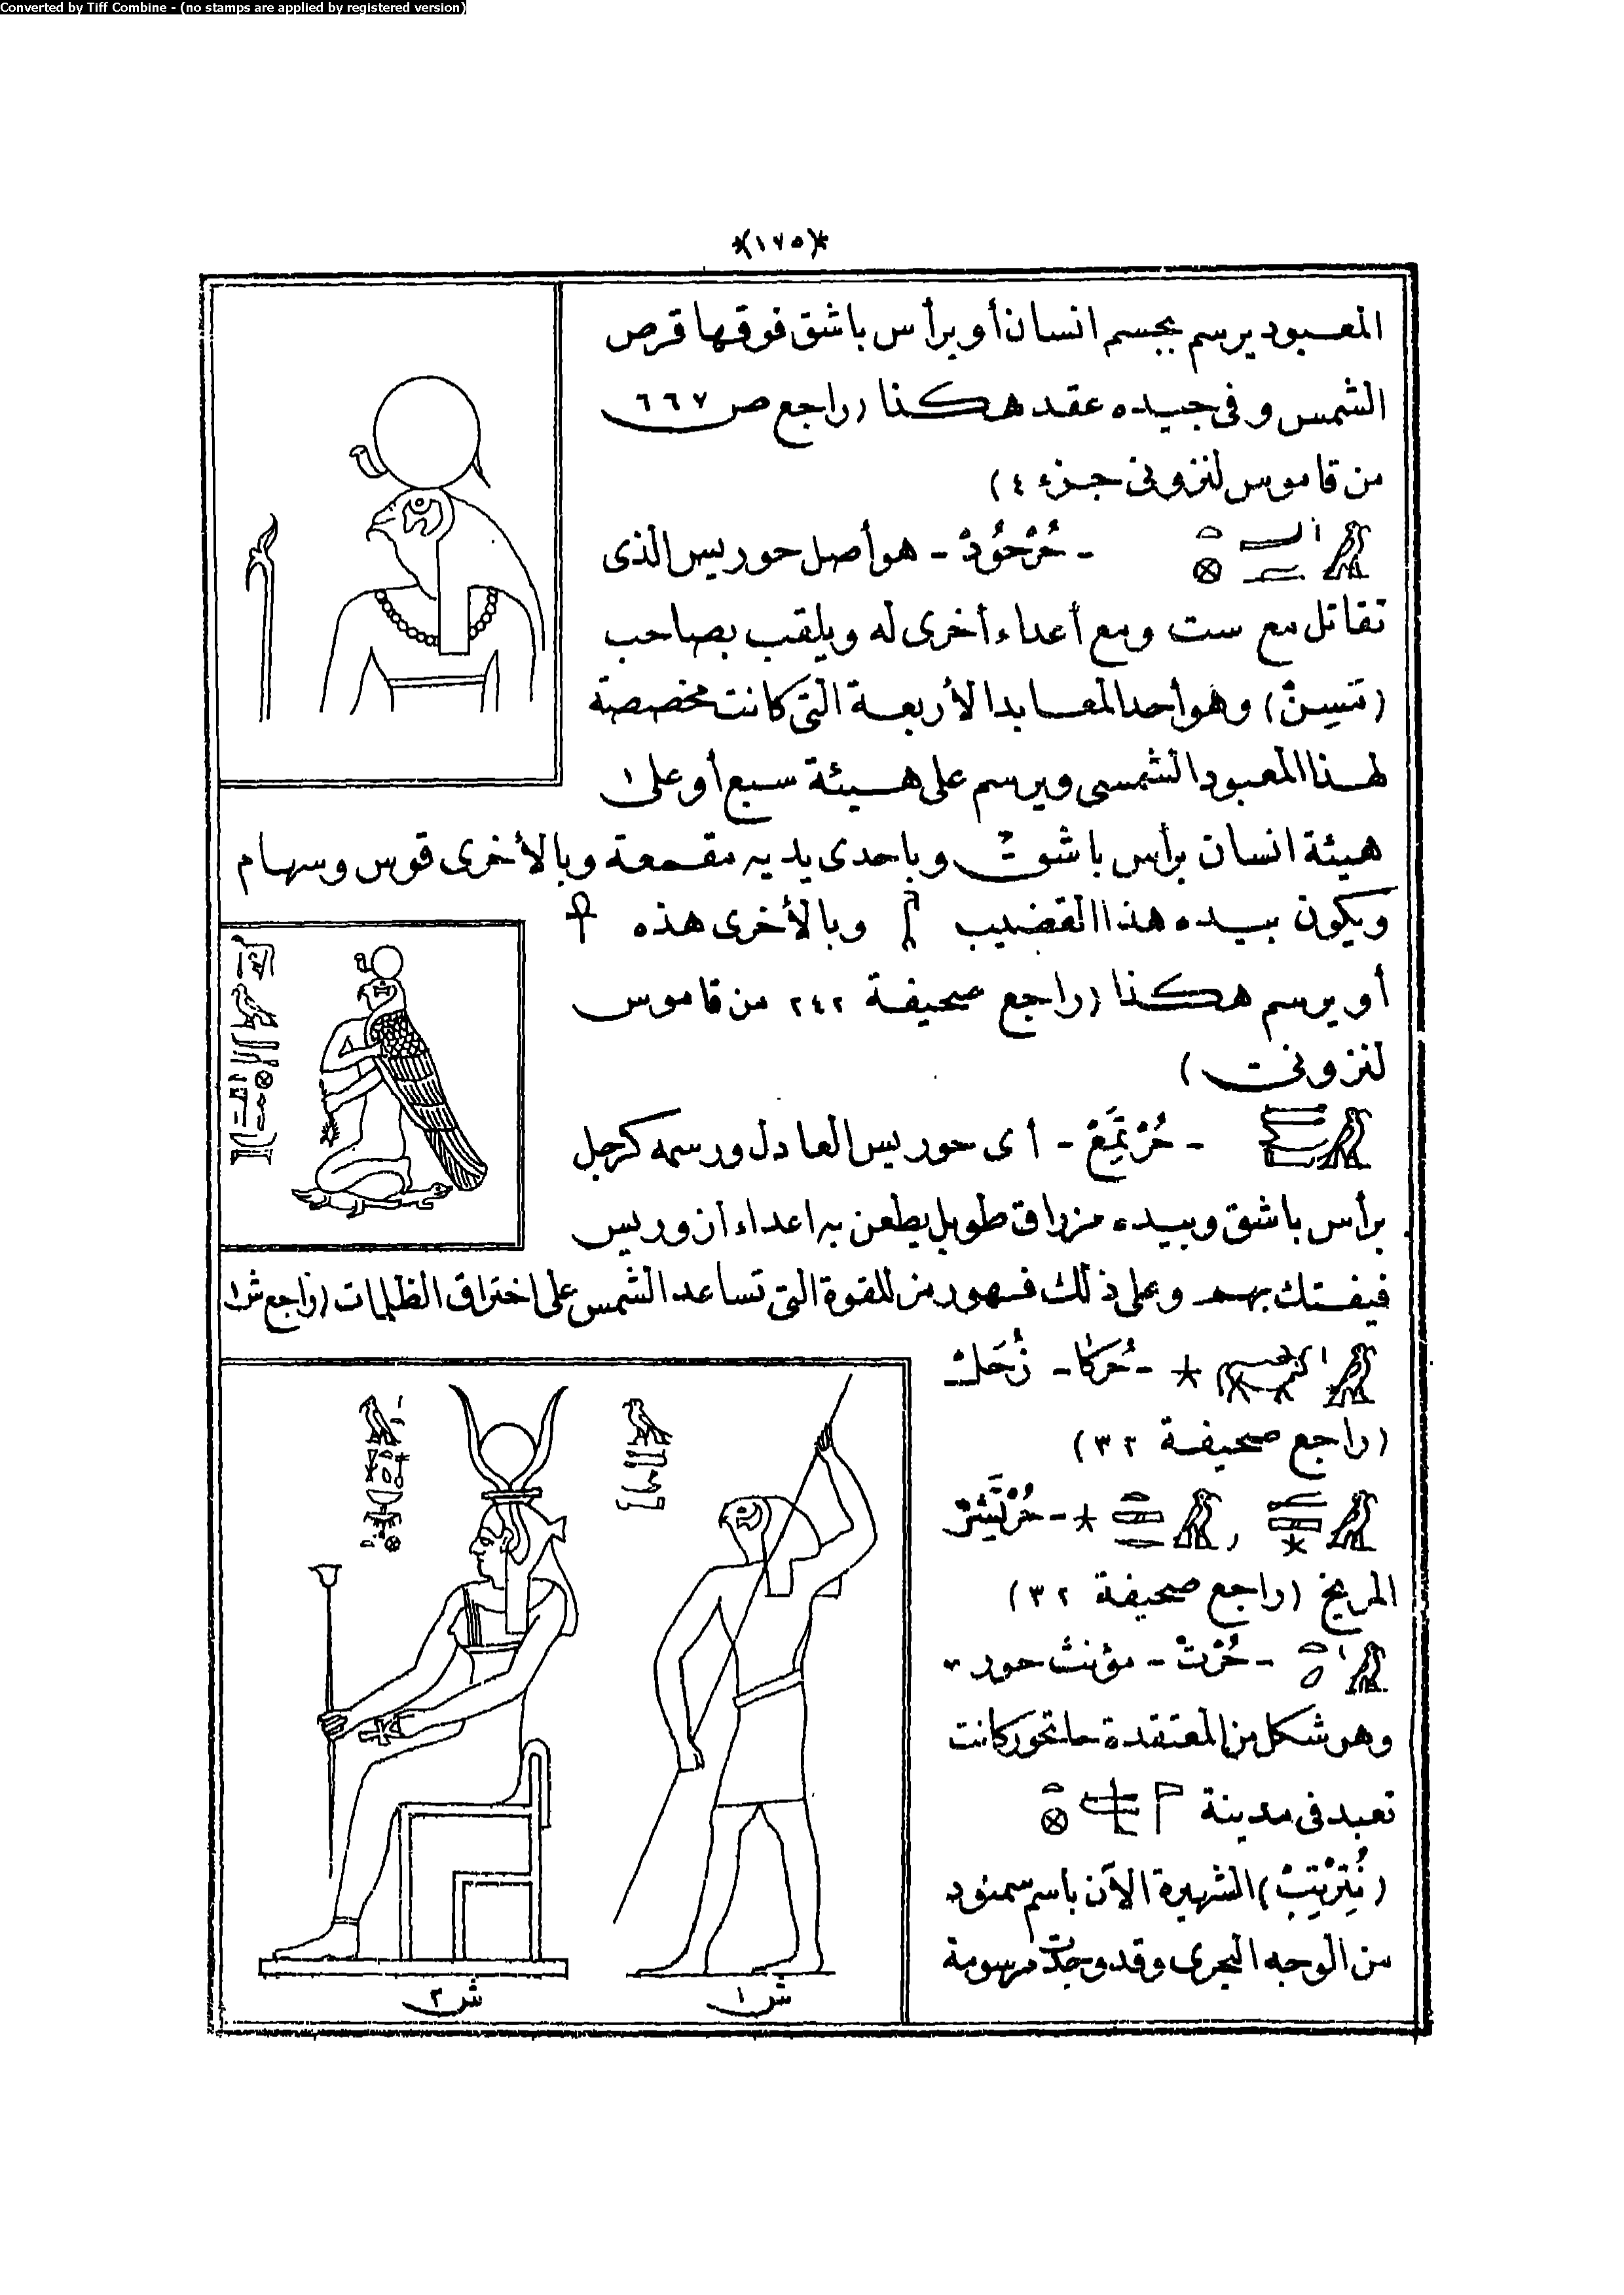 Converted by Tiff Combine - (no stamps are applied by registered version)
*(١٧٥)*
المعبود يرسم بجسم انسان أو برأس باشق فوقها قرص
الشمس وفى جيده عقد هكذا (راجع ص ٦٦٧
من قاموس لنزونى جزء ٤)
- حُرْحُودْ - هو أصل حوريس الذى
تقاتل مع ست ومع أعداء أخرى له ويلقب بصاحب
(تسِنْ) وهو أحد المعابد الأربعة التى كانت مخصصة
لهذا المعبود الشمسى ويرسم على هيئة سبع أو على
هيئة انسان برأس باشق وباحدى يديه مقمعة وبالأخرى قوس وسهام
ويكون بيده هذا القضيب وبالأخرى هذه
أو يرسم هكذا (راجع صحيفة ٢٤٢ من قاموس
لنزونى)
- حُرْتَمِعْ - أى حوريس العادل ورسمه كرجل
برأس باشق وبيده مزراق طويل يطعن به اعداء ازوريس
فيفتك بهم وعلى ذلك فهو رمز للقوة التى تساعد الشمس على اختراق الظلمات (راجع ش ١
- حُركَا - زُحَل
(راجع صحيفة ٣٢)
- حُرْتَشِرْ
المريخ (راجع صحيفة ٣٢)
- حُرْتْ - مؤنث حور
وهو شكل من المعتقدة حاتحور كانت
تعبد فى مدينة
(نُتِرْتِبْ) الشهيرة الآن باسم سمنود
من الوجه البحرى وقد وجدت مرسومة
ش ١
ش ٢